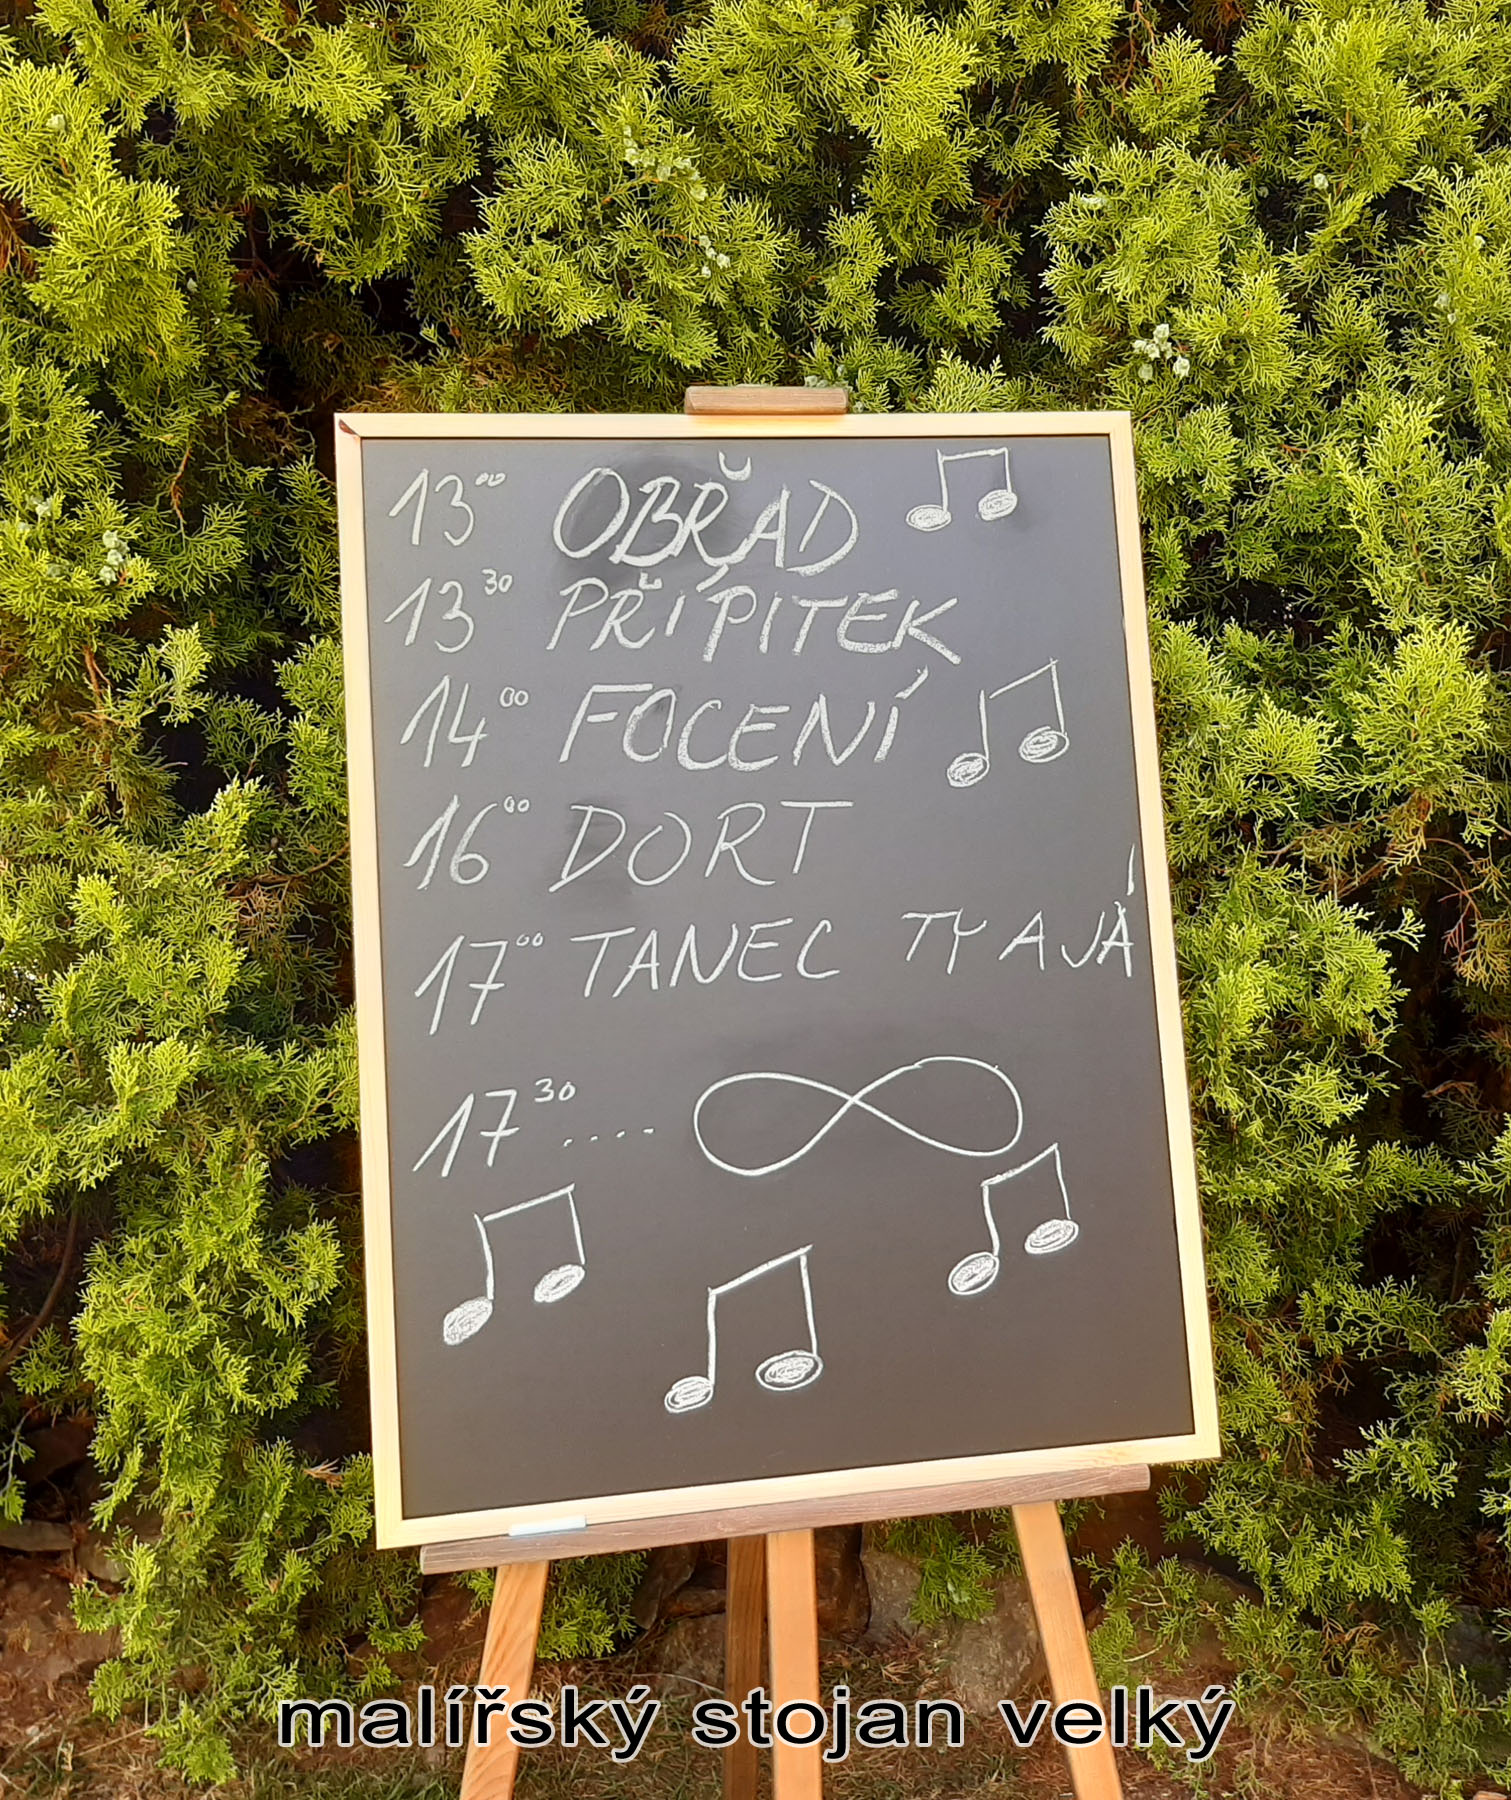 13⁰⁰ OBŘAD
13³⁰ PŘÍPITEK
14⁰⁰ FOCENÍ
16⁰⁰ DORT
17⁰⁰ TANEC TY A JÁ
17³⁰ .... ∞
malířský stojan velký